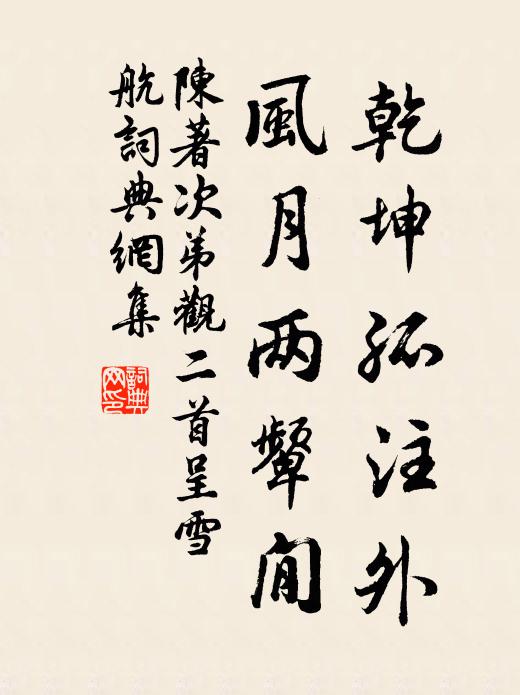 乾坤孤注外
風月两顰間
陳著次弟觀二首呈雪
航詞典網集
詞典
网印